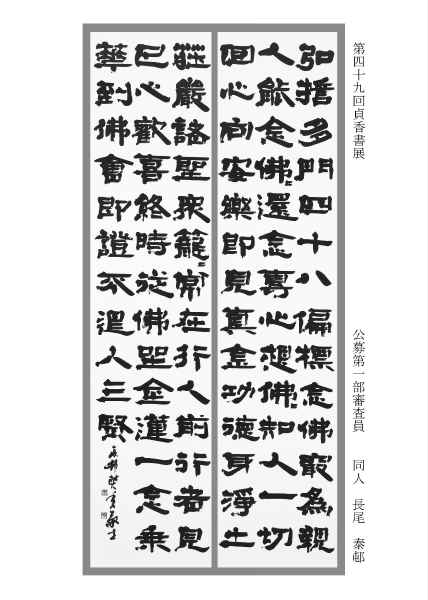 第四十九回貞香書展
公募第一部審査員　同人　長尾　泰邨
弘誓多門四十八偏標念佛最為親
人能念佛々還念專心想佛々知人一切
回心向安樂即見真金功德身淨土
莊嚴諸聖衆籠々常在行人前行者見
已心歡喜終時從佛坐金蓮一念乘
華到佛會即證不退入三賢